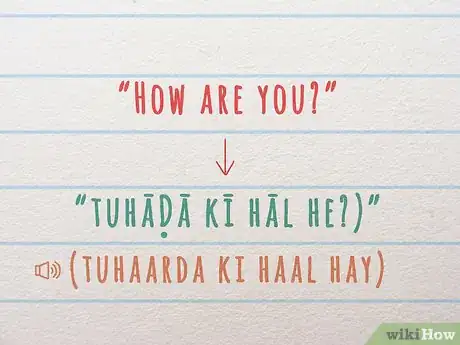 "HOW ARE YOU?"
"TUHĀḌĀ KĪ HĀL HE?)"
(TUHAARDA KI HAAL HAY)
wikiHow